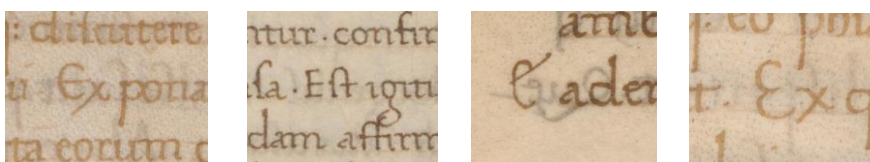 : diſcuttere
Ex pona
ta eorum c
ntur · confir
ſa · Eſt igitu
dam affirm
amb
& ader
eo phi
t. Ex q